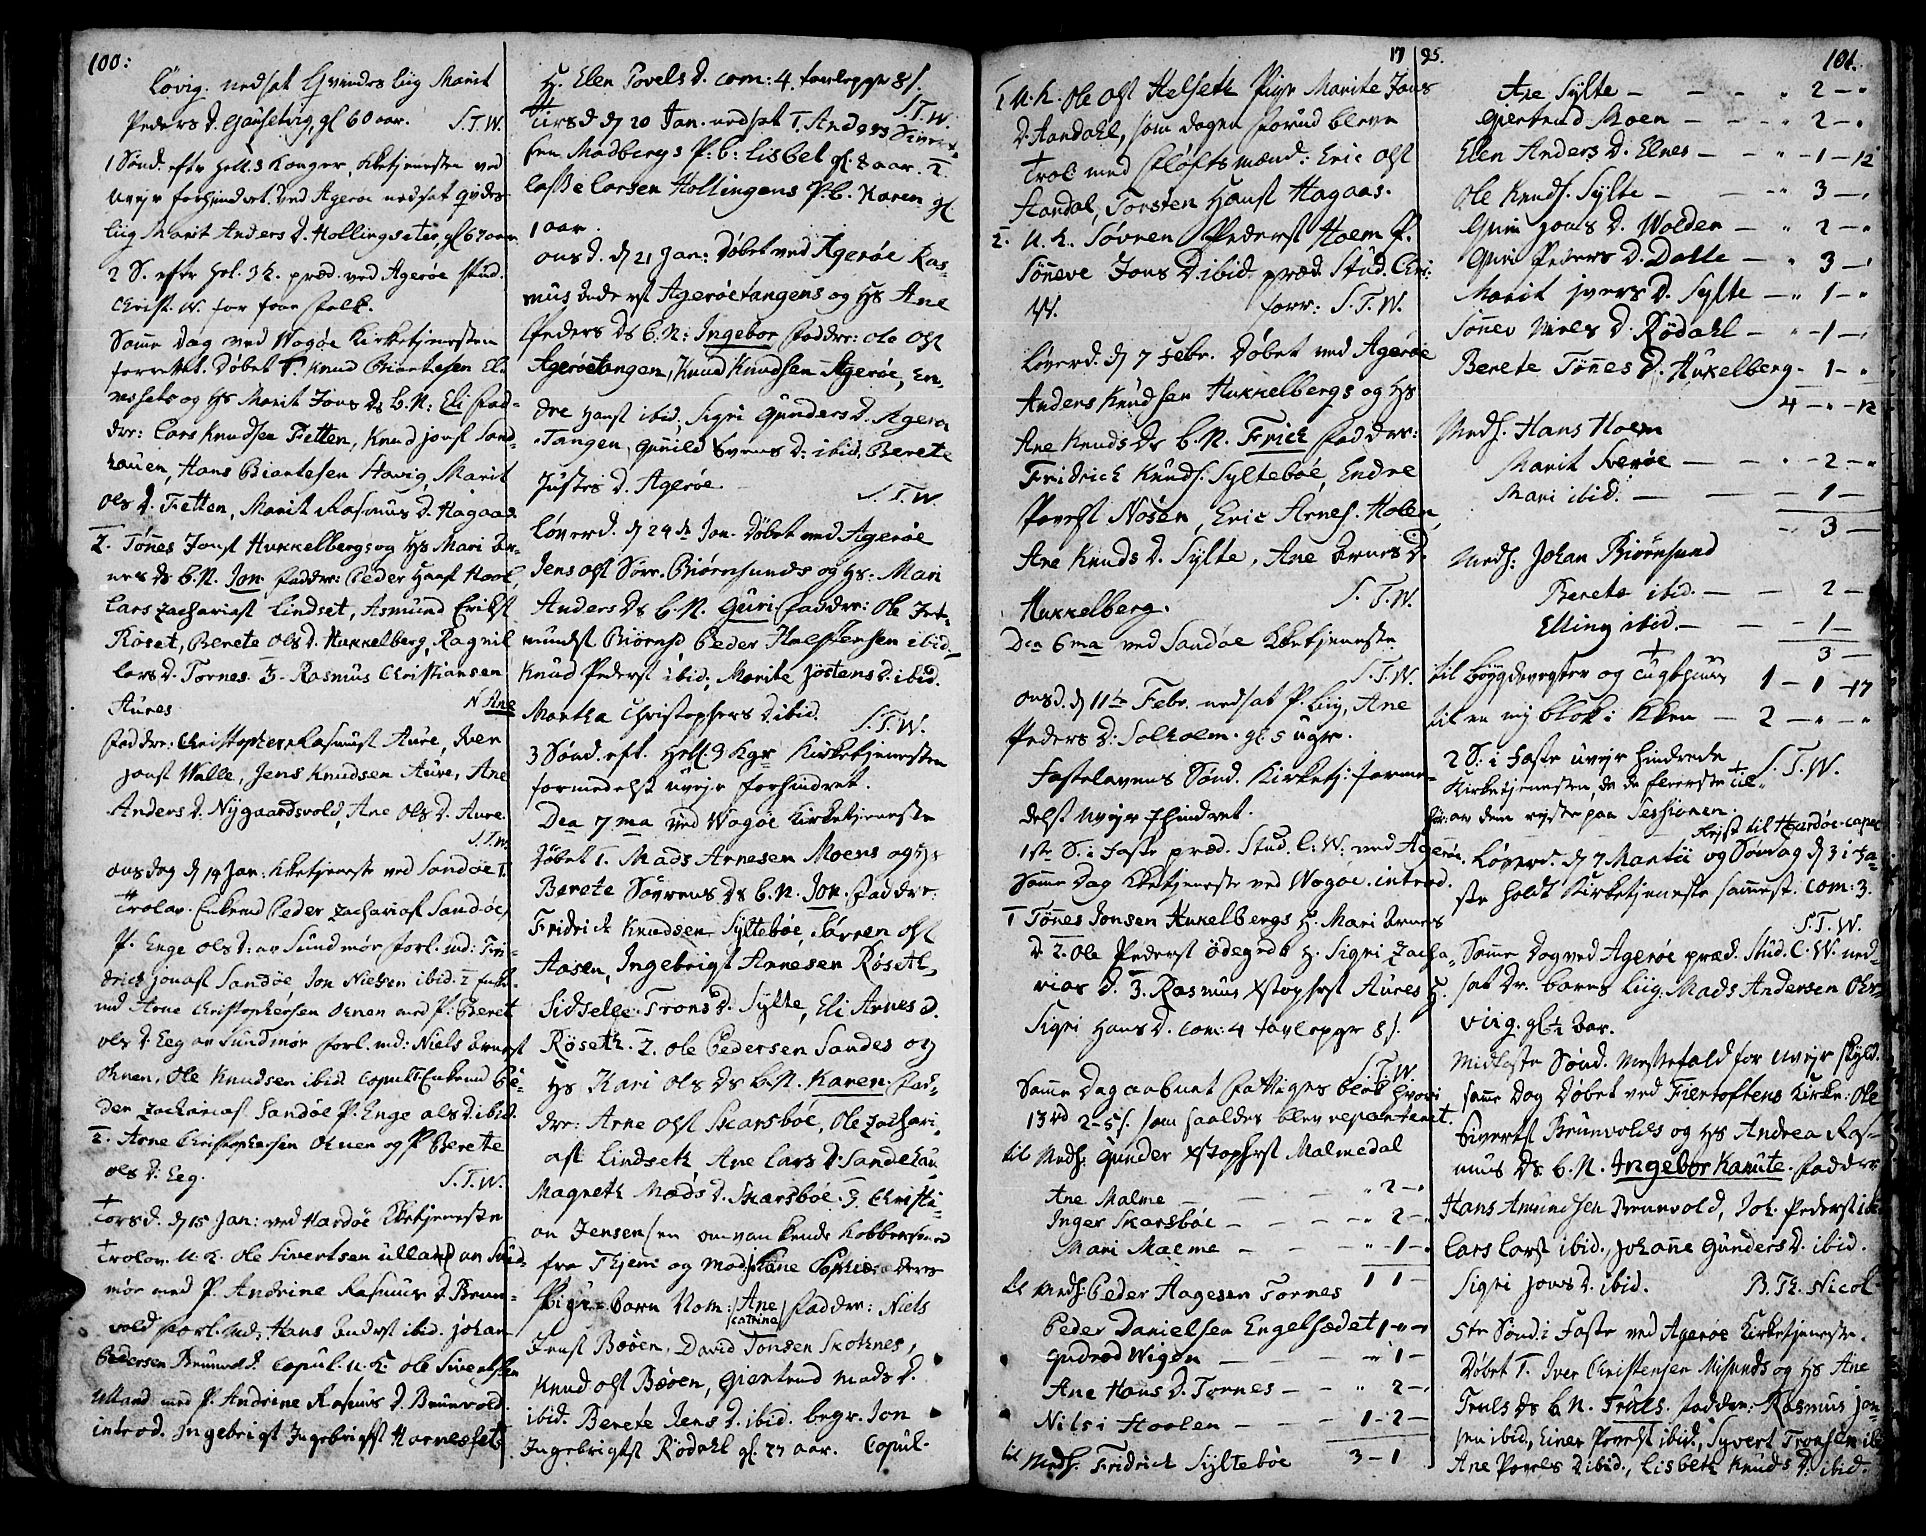 100:
Løvig. nedsat Qvindes Liig Marit
Peders D. Gausetvig, gl 60 aar. S.T.W.
1 Sønd. efter Hell. 3 Konger, Kketjenesten ved
uvejr forhindret. Ved Agerøe nedsat qvindes
liig Marit Anders D. Hollingseter, gl 67 aar
2 S. efter Hel. 3 K. præd. ved Agerøe Stud.
Christ. W. for faae folk.
Samme Dag ved Wogøe Kirketjenesten
forrettet. Døbet 1. Knud Biørtesen Eli
nessets og Hs Marit Jons Ds b. N: Eli fad-
dre: Lars Knudsen Fetten, Knud Jonss Sand
hauen, Hans Biørtesen Havig, Marit
Ols D. Fetten, Marit Rasmus D. Hagaas
2. Tønnes Jonss Hukkelbergs og Hs Mari Ar-
nes Ds b. N. Jon faddre: Peder Hanss Hool
Lars Zachariass Lindset, Asmund Erikss
Røset, Berete Ols D. Hukkelberg, Ragnil
Lars D. Tornes. 3. Rasmus Christiansen
Aures N. Ane
faddre: Christopher Rasmuss Aure, Iver
Jonss Walle, Jens Knudsen Aure, Ane
Anders D. Nygaardsvold, Ane Ols D. Aure.
S.T.W.
Onsdag d 14 Jan: Kketjeneste ved Sandøe 1.
Trolov. Enkemd Peder Zachariass Sandøe,
P. Enge Ols D: av Sundmør forl. md: Fri-
drich Jonass Sandøe Jon Nielsen ibid. 2 Enke-
md Arne Christophersen Ohnen med P: Beret
Ols D. Eeg av Sundmør forl. md: Niels Arness
Ohnen, Ole Knudsen ibid copul: Enkemd Pe-
der Zachariass Sandøe P. Enge Ols D. ibid.
2. Arne Christophersen Ohnen og P Berette
Ols D. Eeg. S.T.W.
Torsd. d 15 Jan: ved Hardøe Kketjeneste
Trolov. U. K. Ole Sivertsen Ulland av Sund-
mør med P. Andrine Rasmus D. Brun-
vold forl. md: Hans ibid. Johan
Pedersen Brunvold. Copul. U. K: Ole Sivertsen
Ulland med P. Andrine Rasmus D. Brunvold.
introd. Ingebrigt Ingebrigtss Harnessets
H. Elen Povels D. com: 4. tavlepge 8 s.
S.T.W.
Tirsd. d 20 Jan. nedsat 1. Anders Sivert-
sen Madbergs P: b: Lisbet gl. 8 aar. 2.
Lasse Larsen Hollingens P. b. Karen gl
1 aar.
Onsd. d 21 Jan: Døbet ved Agerøe Ras-
mus Agerøetangens og Hs Ane
Peders Ds b. N: Ingebor faddre: Ole Olss
Agerøetangen, Knud Knudsen Agerøe, En-
dre Hanss ibid, Sigri Gunders D. Agerøe
Tangen, Gunild Svens D: ibid. Berete
Justes D. Agerøe. S.T.W.
Løverd. d 24de Jan. Døbet ved Agerøe
Jens Olss Sørr. Biørnsunds og Hs. Mari
Anders Ds b. N. Guri faddre: Ole Jet-
mundss Biørnsd Peder Halstensen ibid
Knud Pederss ibid, Marite Jostens D. ibid.
Martha Christophers D. ibid. S.T.W.
3 Sønd. eft. Hell. 3 Kgr Kirketjenesten
formedelst uvejr forhindret.
Den 7ma ved Wogøe Kirketjeneste
Døbet 1. Mads Arnesen Moens og Hs
Berete Sörrens Ds b. N. Jon. faddre:
Fridrich Knudsen Syltebøe, Sörren Olss
Aasen, Ingebrigt Arnesen Røseth,
Sidselle Trons D. Sylte, Eli Arnes D.
Røseth. 2. Ole Pedersen Sandes og
Hs Kari Ols Ds b. N. Karen. fad-
dre: Arne Olss Skarsbøe, Ole Zachari-
ass Lindseth, Ane Lars D. Sandehau
Magreth Mads D. Skarsbøe. 3. Christi-
an Jensen en omvankende Kobbersmed
fra Thiem og Mad: Hane Sophies deres
Pige-barn Nom: Ane Catrine faddre: Niels
Jenss Bøen, David Tonsen Skotnes,
Knud Olss Bøen, Giertrud Mads D.
ibid. Berete Jens D. ibid. begr. Jon
Ingebrigtss Rødahl gl. 27 aar. Copul-
17 95.
1 U. K. Ole Olss Helseth Pige Marite Jons
D. Aandahl, som dagen forud bleve
Trol. med fløftsmænd: Eric Olss
Aandal, Torsten Hanss Hagaas.
2. U. K. Sövren Pederss Hoem P.
Sönneve Jons D. ibid. præd. Stud. Chri:
W. forr: S.T.W.
Løverd. d 7 Febr. Døbet ved Agerøe
Anders Knudsen Hukkelbergs og Hs
Ane Knuds Ds b. N. Erich faddre:
Fridrich Knuds. Syltebøe, Endre
Povelss Nøsen, Eric Arnes. Holen,
Ane Knuds D. Sylte, Ane Arnes D.
Hukkelberg. S.T.W.
Den 6ma ved Sandøe Kketjeneste
S.T.W.
Onsd. d 11te Febr. nedsat P. Liig, Ane
Peders D: Solholm. gl. 5 uger.
Fastelavens Sönd. Kirketj. forme-
delst uvejr fhindret.
1ste S. i Faste præd. Stud. C. W. ved Agerøe.
Samme Dag Kketjeneste ved Wogøe. introd.
1 Tönnes Jonsen Hukelbergs H. Mari Arnes
D 2. Ole Pederss Ødegrds H. Sigri Zacha-
rias D. 3. Rasmus Xstophss Aures H.
Sigri Hans D. com: 4 tavlepge 8 s.
S.T.W
Samme Dag aabnet fattiges blok hvori
13 rd 2-5 s. som saaledes blev reparteret.
til Meds: Gunder Xstophss Malmedal
Ane Malme — — " 2 — "
Inger Skarsbøe — — — " 2 — "
Mari Malme — — — " — 1 — "
1 1 —
til Meds: Peder Hagesen Tornes
Peder Danielsen Engelsædet 1 — " — "
Gudrod Wigen — — — " 1 —
Ane Hans D. Tornes — — " 2 —
Nils i Hoolen — — — 1 - 2 —
til Meds. Fridrich Syltebøe 3 — 1
101.
Ane Sylte — — — " 2 — "
Giertrud Moen — — — " — 2 — "
Elen Anders D. Elnes — — " — 1 — 12
Ole Knuds. Sylte — — " 3 — "
Guri Jons D. Wolden — " 2 — "
Guri Peders D. Dalle — " 3 — "
Marit Ivers D. Sylte — " 1 — "
Sönnev Niels D. Rödahl — " — 1 — "
Berete Tönnes D. Hukelberg — 1 — "
4 — " — 12
Meds. Hans Hoem
Marit Sverøe — — " — 2 — "
Mari ibid. — — — 1 —
" 3 —
Meds: Johan Biørnsund
Berete ibid. — — 2 —
Elling ibid. — — — 1 —
3 —
til Bøygdevegter og Tugthuus 1 — 1 — 17
til en ny blok i Kken — 2 — " — "
2 S: i Faste uvejr hindrede S.T.W.
Kirketjenesten, da de fleereste til-
lige av dem rejste paa Sessionen.
Rejst til Hardøe-capel
Løverd. d 7 Martii og Søndag d 3 i Fa-
ste holdt Kirketjeneste sammest. com: 3.
S.T.W.
Samme Dag ved Agerøe præd. Stud. C. W. ned-
sat Dr. barns Liig: Mads Andersen Ohr-
viig. gl ½ aar.
Midfaste Sønd. Messefald for uvejr skyld.
samme Dag Døbet ved Fiertoftens Kirke: Ole
Sivertss Brunvolds og Hs Andrea Ras-
mus Ds b. N. Ingebor Kanute. faddre
Hans Amundsen Brunvold, Joh. Pederss ibi
Lars Larss ibid. Johanne Gunders D. ibid.
Sigri Jons D. ibid. B. Th. Nicol
5te Sönd: i Faste ved Agerøe Kirketjeneste.
Døbet 1. Iver Christensen Misunds og Hs Ane
Truls Ds b. N. Truls. faddre: Rasmus Jon-
sen ibid, Einer Povelss ibid, Syvert Tronsen ib
Ane Povels D. ibid., Lisbeth Knuds D. ibid.